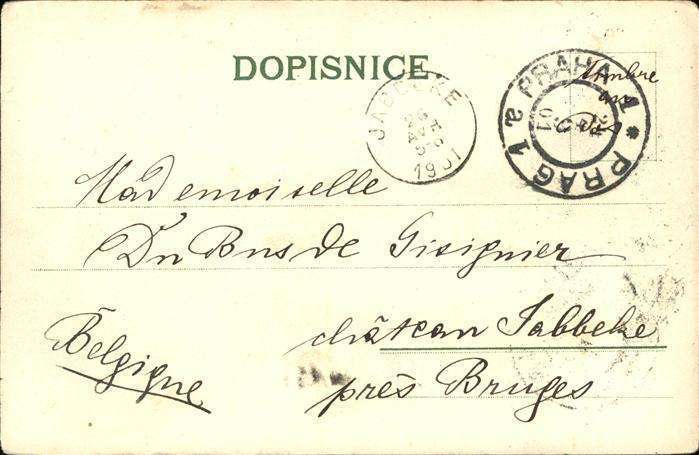 DOPISNICE
Timbre
au
JABBEKE
26
AVR
1901
PRAHA 1 * PRAG 1 a
Mademoiselle
Du Bus de Gisignies
château Jabbeke
près Bruges
Belgique